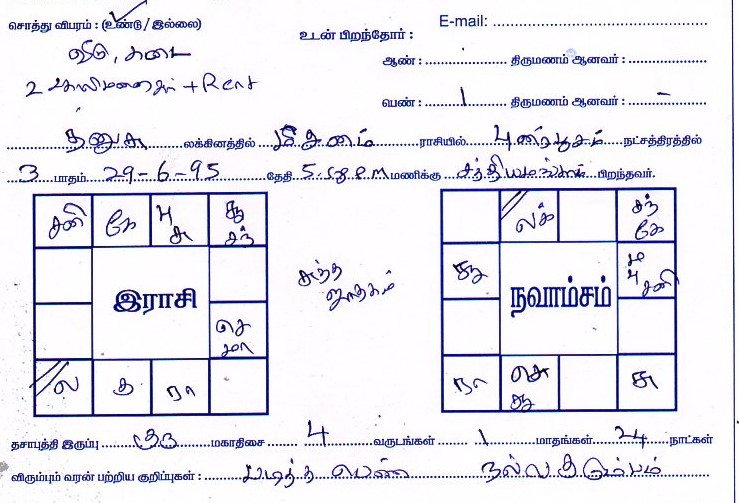 சொத்து விபரம் : (உண்டு / இல்லை)
வீடு, கடை
2 காலிமனைகள் + Rent
E-mail:
உடன் பிறந்தோர் :
ஆண் : திருமணம் ஆனவர் :
பெண் : 1 திருமணம் ஆனவர் : -
தனுசு லக்கினத்தில் மிதுனம் ராசியில் புனர்பூசம் நட்சத்திரத்தில்
3 பாதம் 29-6-95 தேதி மணிக்கு சத்தியமங்கலம் பிறந்தவர்.
சனி கே பு சு சூ சந்
இராசி
செ மா
ல கு ரா
சுத்த ஜாதகம்
லக் சந் கே
சூ
நவாம்சம்
பு சனி
ரா செ கு சு
தசாபுத்தி இருப்பு குரு மகாதிசை 4 வருடங்கள் 1 மாதங்கள் 24 நாட்கள்
விரும்பும் வரன் பற்றிய குறிப்புகள் : படித்த பெண் நல்ல குடும்பம்